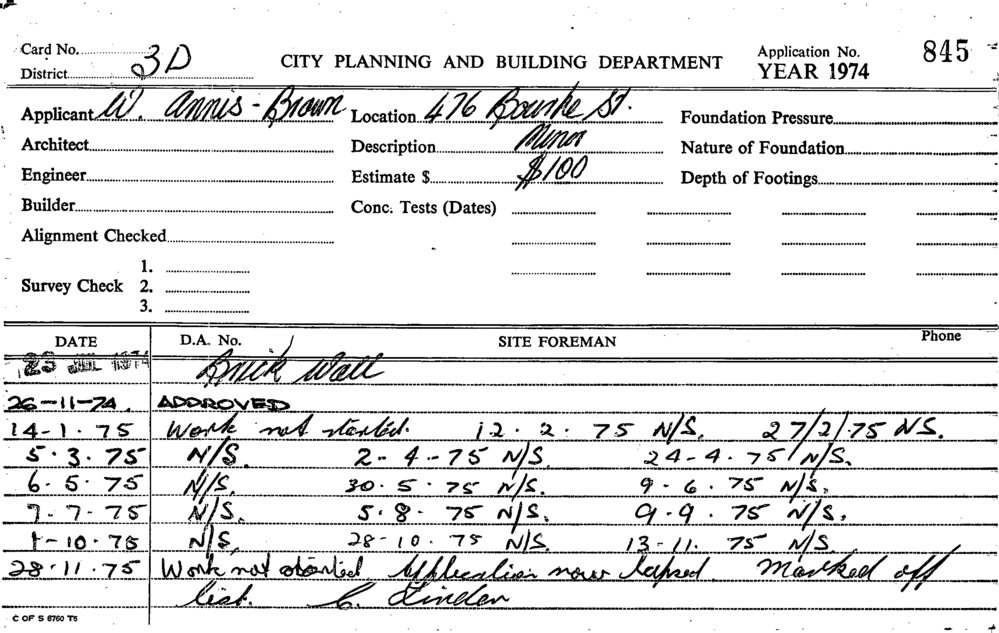 Card No. 3D CITY PLANNING AND BUILDING DEPARTMENT Application No. 845
District YEAR 1974
Applicant W. Annis-Brown Location 476 Bourke St. Foundation Pressure
Architect Description Minor Nature of Foundation
Engineer Estimate $ $100 Depth of Footings
Builder Conc. Tests (Dates)
Alignment Checked
1.
Survey Check 2.
3.
DATE D.A. No. SITE FOREMAN Phone
23 JUL 1974 Brick Wall
26-11-74. APPROVED
14-1.75 Work not started. 12.2.75 N/S. 27/2/75 NS.
5.3.75 N/S. 2-4-75 N/S. 24-4.75 N/S.
6.5.75 N/S. 30.5.75 N/S. 9-6.75 N/S.
7-7-75 N/S. 5.8.75 N/S. 9-9.75 N/S.
1-10.75 N/S. 28-10.75 N/S. 13-11.75 N/S.
28.11.75 Work not started Application now lapsed. Marked off
list. C. Linden
C OF S 6760 T5